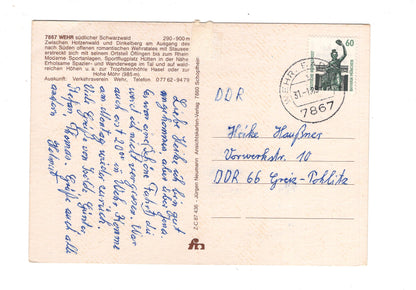 7867 WEHR südlicher Schwarzwald 290-900 m
Zwischen Hotzenwald und Dinkelberg am Ausgang des
nach Süden offenen romantischen Wehratales mit Stausee
erstreckt sich mit seinem Ortsteil Öflingen bis zum Rhein
Moderne Sportanlagen, Sportflugplatz Hütten in der Nähe
Erholsame Spazier- und Wanderwege im Tal und auf wald-
reichen Höhen u. a. zur Tropfsteinhöhle Hasel oder zur
Hohe Möhr (985 m).
Auskunft: Verkehrsverein Wehr, Telefon 07762-9479
Liebe Heike, ich bin gut
angekommen aber
es war eine schöne Fahrt die
werd ich nicht vergessen. War
auch erst 20⁰⁰ in Wehr. Komme
am Montag wieder zurück
Viele Grüße von
Stefan, Thomas. Grüße auch alle
andern Helmut
2-C 67 436 - Jürgen Neumann Ansichtskarten-Verlag 7860 Schopfheim
60
DEUTSCHE BUNDESPOST
WEHR
31.-1.
7867
DDR
Heike Haußner
Vorwerkstr. 10
DDR 66 Greiz-Pohlitz